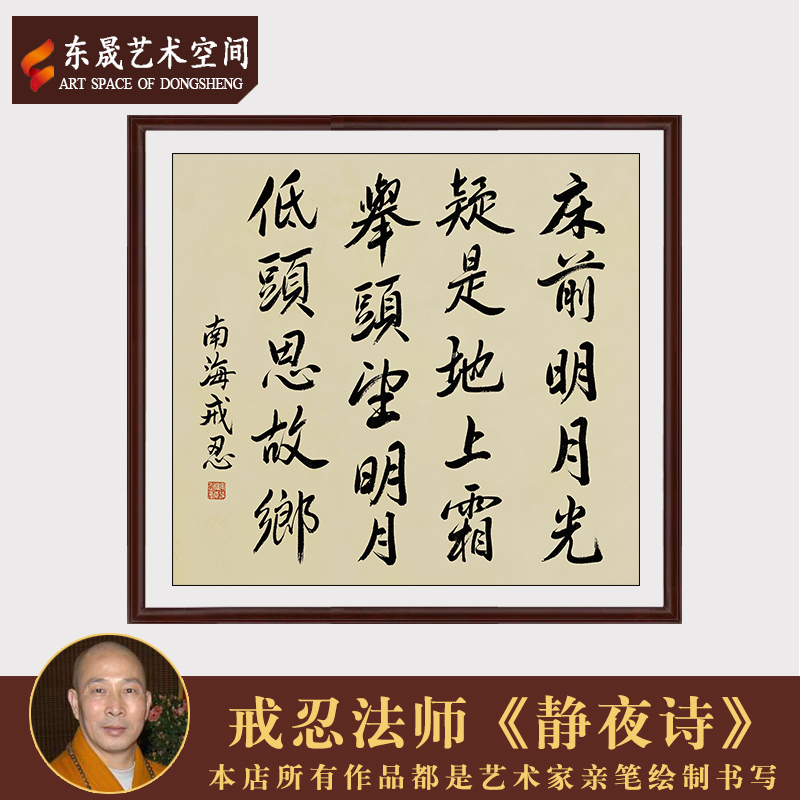 东晟艺术空间
ART SPACE OF DONGSHENG
床前明月光
疑是地上霜
舉頭望明月
低頭思故鄉
南海戒忍
戒忍法师《静夜诗》
本店所有作品都是艺术家亲笔绘制书写